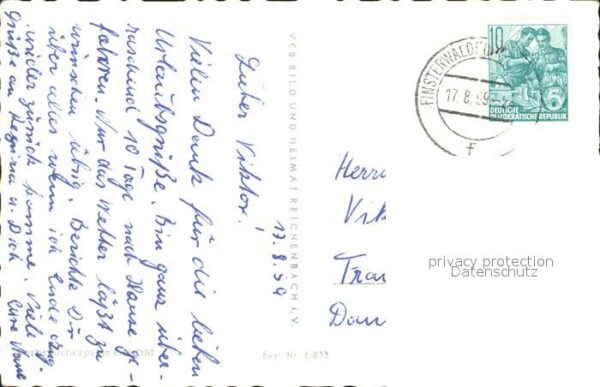 17.8.59
Lieber Viktor!
Vielen Dank für die lieben
Urlaubsgrüße. Bin ganz über-
raschend 10 Tage nach Hause ge-
fahren. Nur das Wetter läßt zu
wünschen übrig. Berichte Dir
über alles wenn ich Ende Aug.
wieder zurück komme. Viele
Grüße an Regina u. Dich
VEB BILD UND HEIMAT REICHENBACH i. V.
Best. Nr. 6-833
10
DEUTSCHE
DEMOKRATISCHE REPUBLIK
FINSTERWALDE
17.8.59
f
Herrn
Vik
Dom
privacy protection
Datenschutz